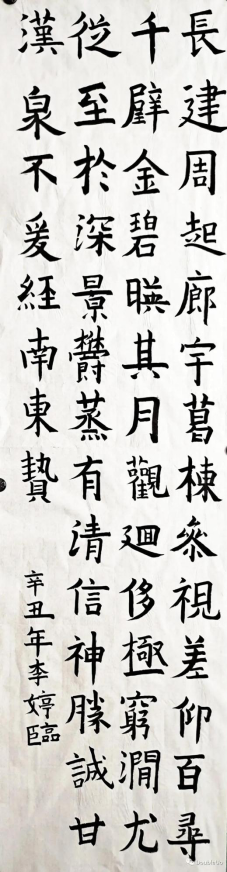 長建周起廊宇葛棟叅視差仰百尋
千壁金碧暎其月觀迴侈極窮澗尤
從至於深景欝蒸有清信神勝誠甘
漢泉不爰經南東贄
辛丑年李婷臨